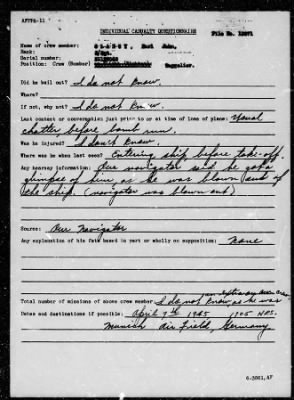 AFPPA-11
INDIVIDUAL CASUALTY QUESTIONNAIRE
File No.
Name of crew member: Earl John,
Rank: S/Sgt.
Serial number:
Position: Crew (Bomber) Toggelier.
Did he bail out? I do not know.
Where?
If not, why not? I do not know.
Last contact or conversation just prior to or at time of loss of plane: Usual
chatter before bomb run.
Was he injured? I don't know.
Where was he when last seen? Entering ship before take-off.
Any hearsay information: Our navigator said he got a
glimpse of him as he was blown out of
the ship. (navigator was blown out)
Source: Our Navigator
Any explanation of his fate based in part or wholly on supposition: None
Total number of missions of above crew member: I do not know, as he was
an extra
Dates and destinations if possible: April 9th 1945 1705 HRS.
Munich Air Field, Germany
6-3861,AF